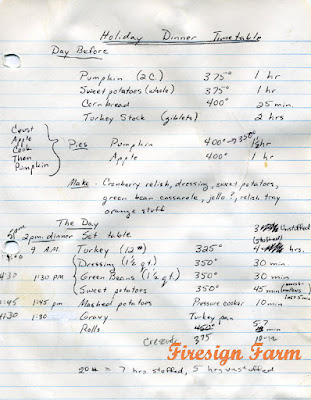 Holiday Dinner Timetable
Day Before
Pumpkin (2C.) 375° 1 hr
Sweet potatoes (whole) 375° 1 hr
Cornbread 400° 25 min.
Turkey Stock (giblets) 2 hrs
Crust
Apple
Cook
Then
Pumpkin
Pies Pumpkin 400° → 350° 1 1/2 hr
Apple 400° 1 hr
Make - Cranberry relish, dressing, sweet potatoes,
green bean casserole, jello?, relish tray
orange stuff
The Day
5pm 2 p.m. dinner Set table 3 unstuffed
(stuffed)
9 A.M. Turkey (12#) 325° 4 hrs.
Dressing (1 1/2 qt.) 350° 30 min
4:30 1:30 PM Green Beans (1 1/2 qt) 350° 30 min
Sweet potatoes 350° 45 min (marsh-
mallows
last 5 min)
4:45 1:45 pm Mashed potatoes Pressure cooker 10 min
4:30 1:30 Gravy Turkey pan
Rolls 450° 5-7 min
Crescents 375 10-12
Firesign Farm
20# = 7 hrs stuffed, 5 hrs unstuffed